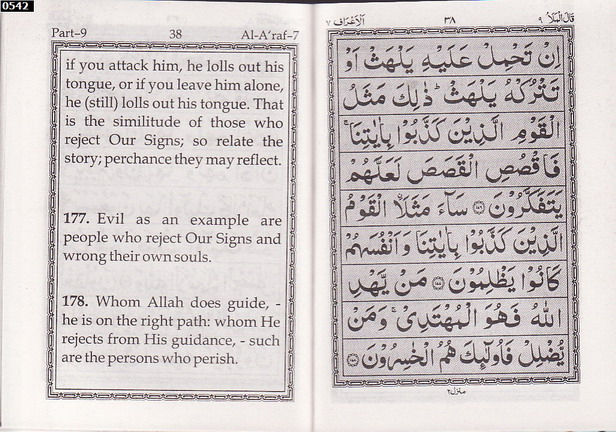 0542
Part-9 38 Al-A'raf-7
if you attack him, he lolls out his
tongue, or if you leave him alone,
he (still) lolls out his tongue. That
is the similitude of those who
reject Our Signs; so relate the
story; perchance they may reflect.
177. Evil as an example are
people who reject Our Signs and
wrong their own souls.
178. Whom Allah does guide, -
he is on the right path: whom He
rejects from His guidance, - such
are the persons who perish.
قَالَ الْمَلَاُ ٩ ٣٨ اَلْاَعْرَاف ٧
اِنْ تَحْمِلْ عَلَيْهِ يَلْهَثْ اَوْ
تَتْرُكْهُ يَلْهَثْ ؕ ذٰلِكَ مَثَلُ
الْقَوْمِ الَّذِيْنَ كَذَّبُوْا بِاٰيٰتِنَا ۚ
فَاقْصُصِ الْقَصَصَ لَعَلَّهُمْ
يَتَفَكَّرُوْنَ ﴿١٧٦﴾ سَآءَ مَثَلَاۨ الْقَوْمُ
الَّذِيْنَ كَذَّبُوْا بِاٰيٰتِنَا وَاَنْفُسَهُمْ
كَانُوْا يَظْلِمُوْنَ ﴿١٧٧﴾ مَنْ يَّهْدِ
اللّٰهُ فَهُوَ الْمُهْتَدِىْ ۚ وَمَنْ
يُّضْلِلْ فَاُولٰٓئِكَ هُمُ الْخٰسِرُوْنَ ﴿١٧٨﴾
منزل ٢